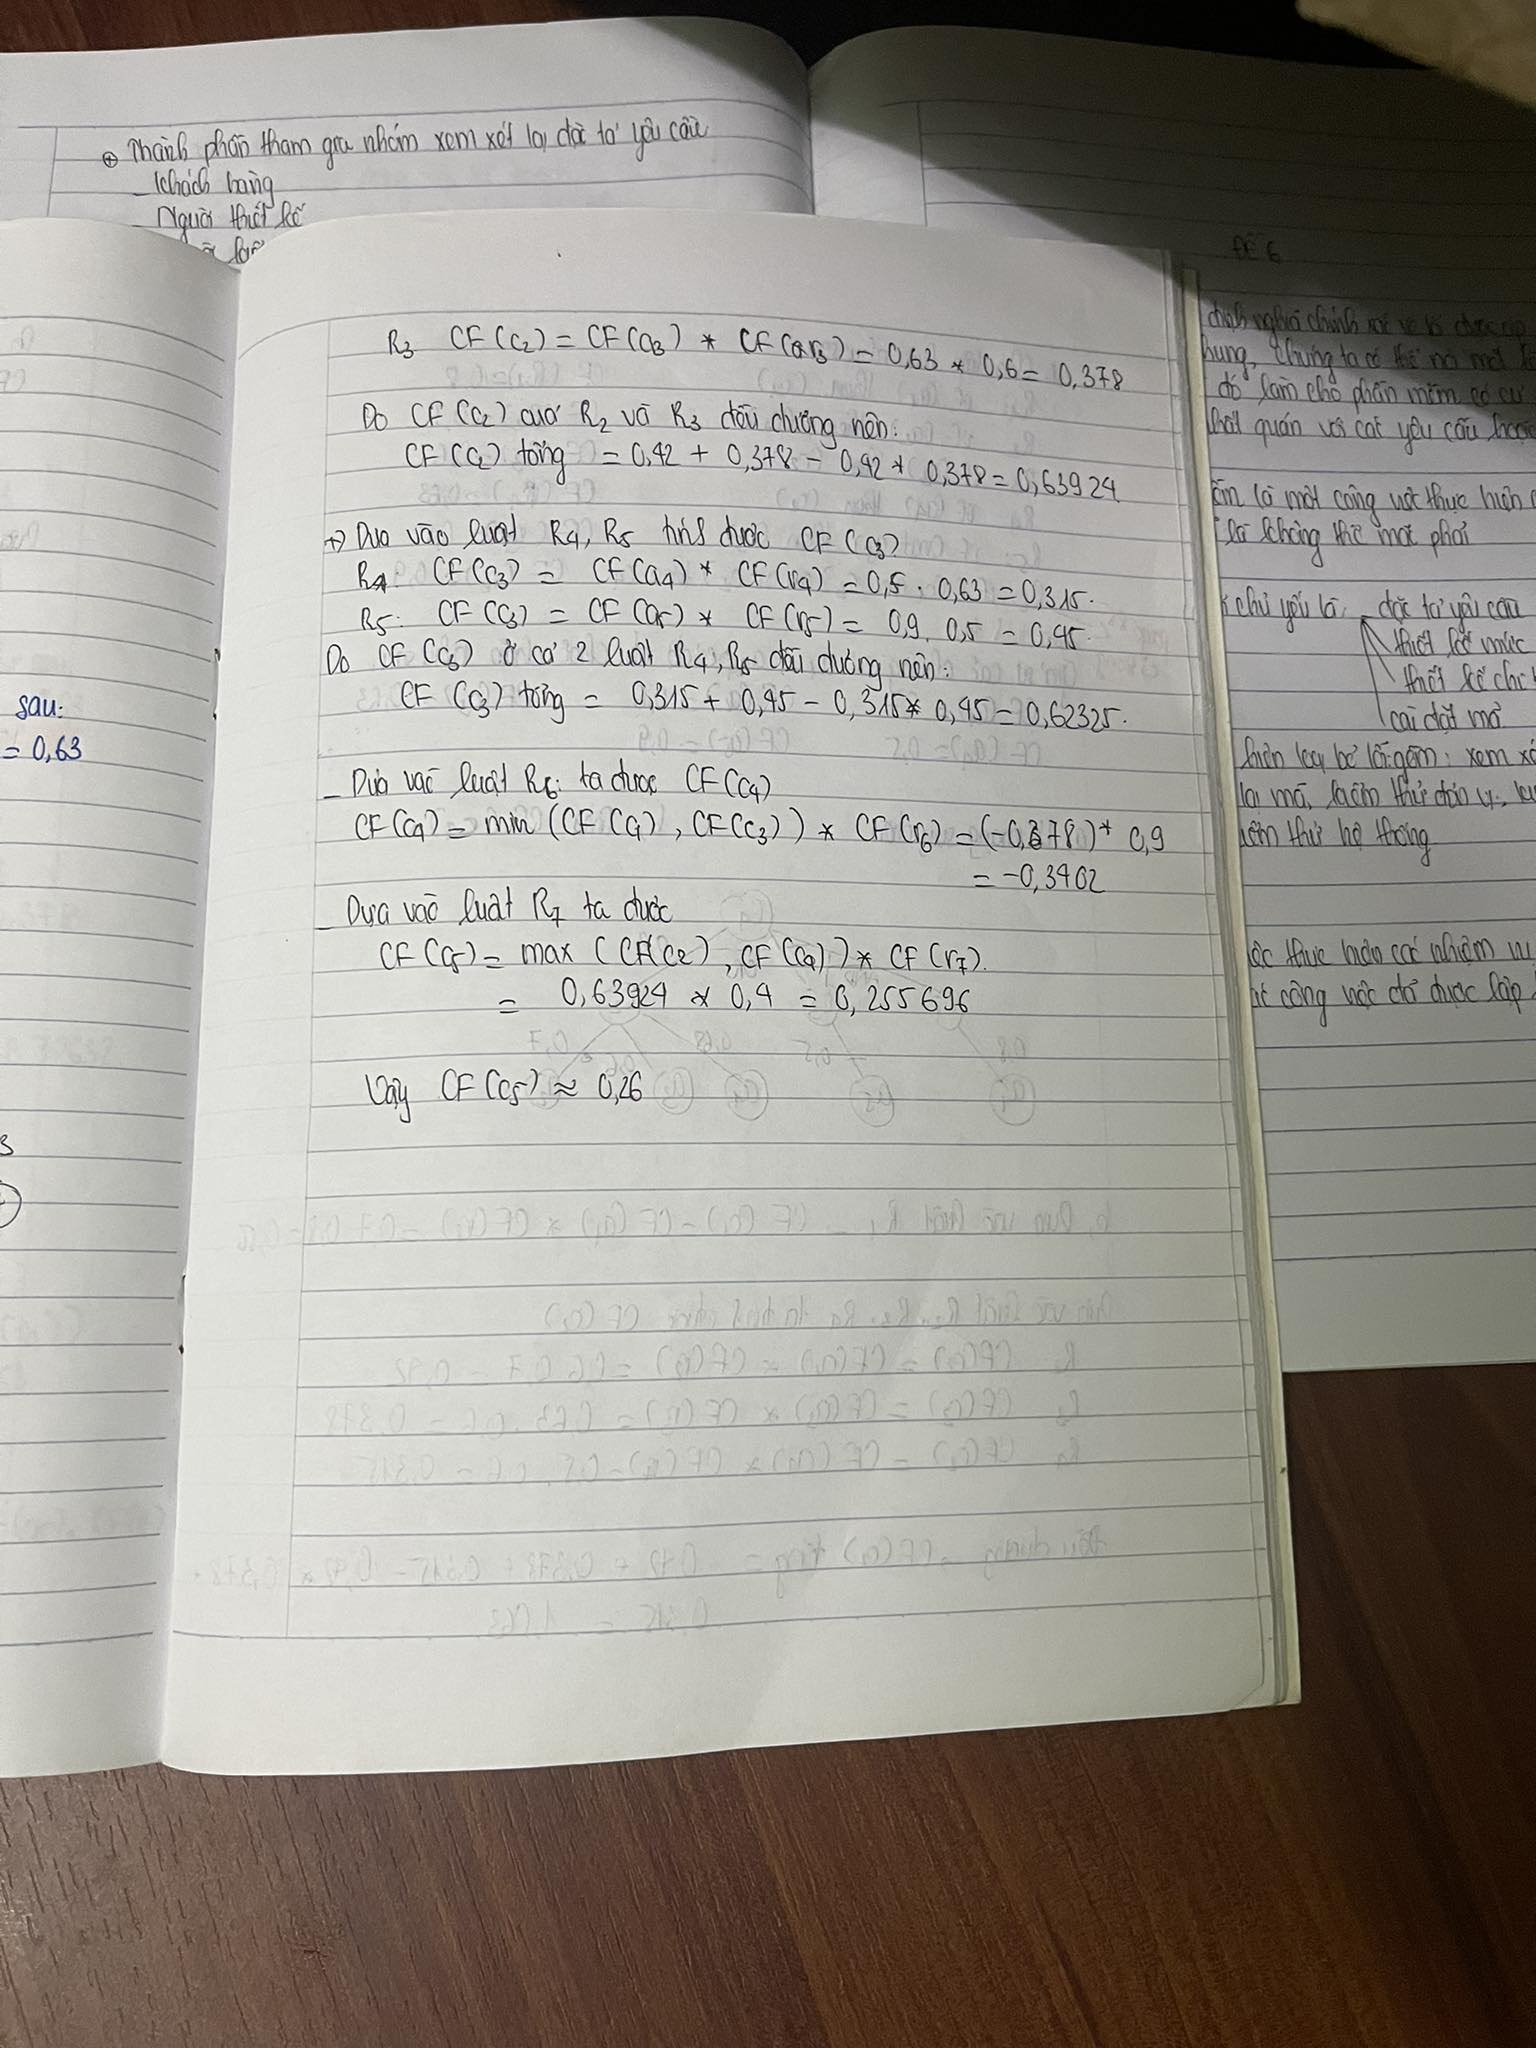 ⊕ Thành phần tham gia nhóm xem xét lại đặc tả yêu cầu
- Khách hàng
- Người thiết kế
ĐỀ 6
R3 CF(C2) = CF(a3) * CF(r3) = 0,63 * 0,6 = 0,378
Do CF(C2) của R2 và R3 đều dương nên:
CF(C2) tổng = 0,42 + 0,378 - 0,42 * 0,378 = 0,63924
+) Dựa vào luật R4, R5 tính được CF(C3)
R4: CF(C3) = CF(a4) * CF(r4) = 0,5 . 0,63 = 0,315.
R5: CF(C3) = CF(a5) * CF(r5) = 0,9 . 0,5 = 0,45.
Do CF(C3) ở cả 2 luật R4, R5 đều dương nên:
CF(C3) tổng = 0,315 + 0,45 - 0,315 * 0,45 = 0,62325.
- Dựa vào luật R6: ta được CF(C4)
CF(C4) = min (CF(C1), CF(C3)) * CF(r6) = (-0,378) * 0,9
= -0,3402
- Dựa vào luật R7 ta được
CF(C5) = max (CF(C2), CF(C4)) * CF(r7).
= 0,63924 * 0,4 = 0,255696
Vậy CF(C5) ≈ 0,26
sau:
= 0,63
định nghĩa chính xác về
hung, chúng ta có thể nó một
đó làm cho phần mềm có
nhất quán với các yêu cầu
là một công việc thực hiện
là không thể mắc phải
chủ yếu là: đặc tả yêu cầu
thiết kế mức
thiết kế chi
cài đặt mã
hiện loại bỏ lỗi gồm: xem xé
lại mã, kiểm thử đơn vị,
kiểm thử hệ thống
việc thực hiện các nhiệm vụ
công việc đó được lập